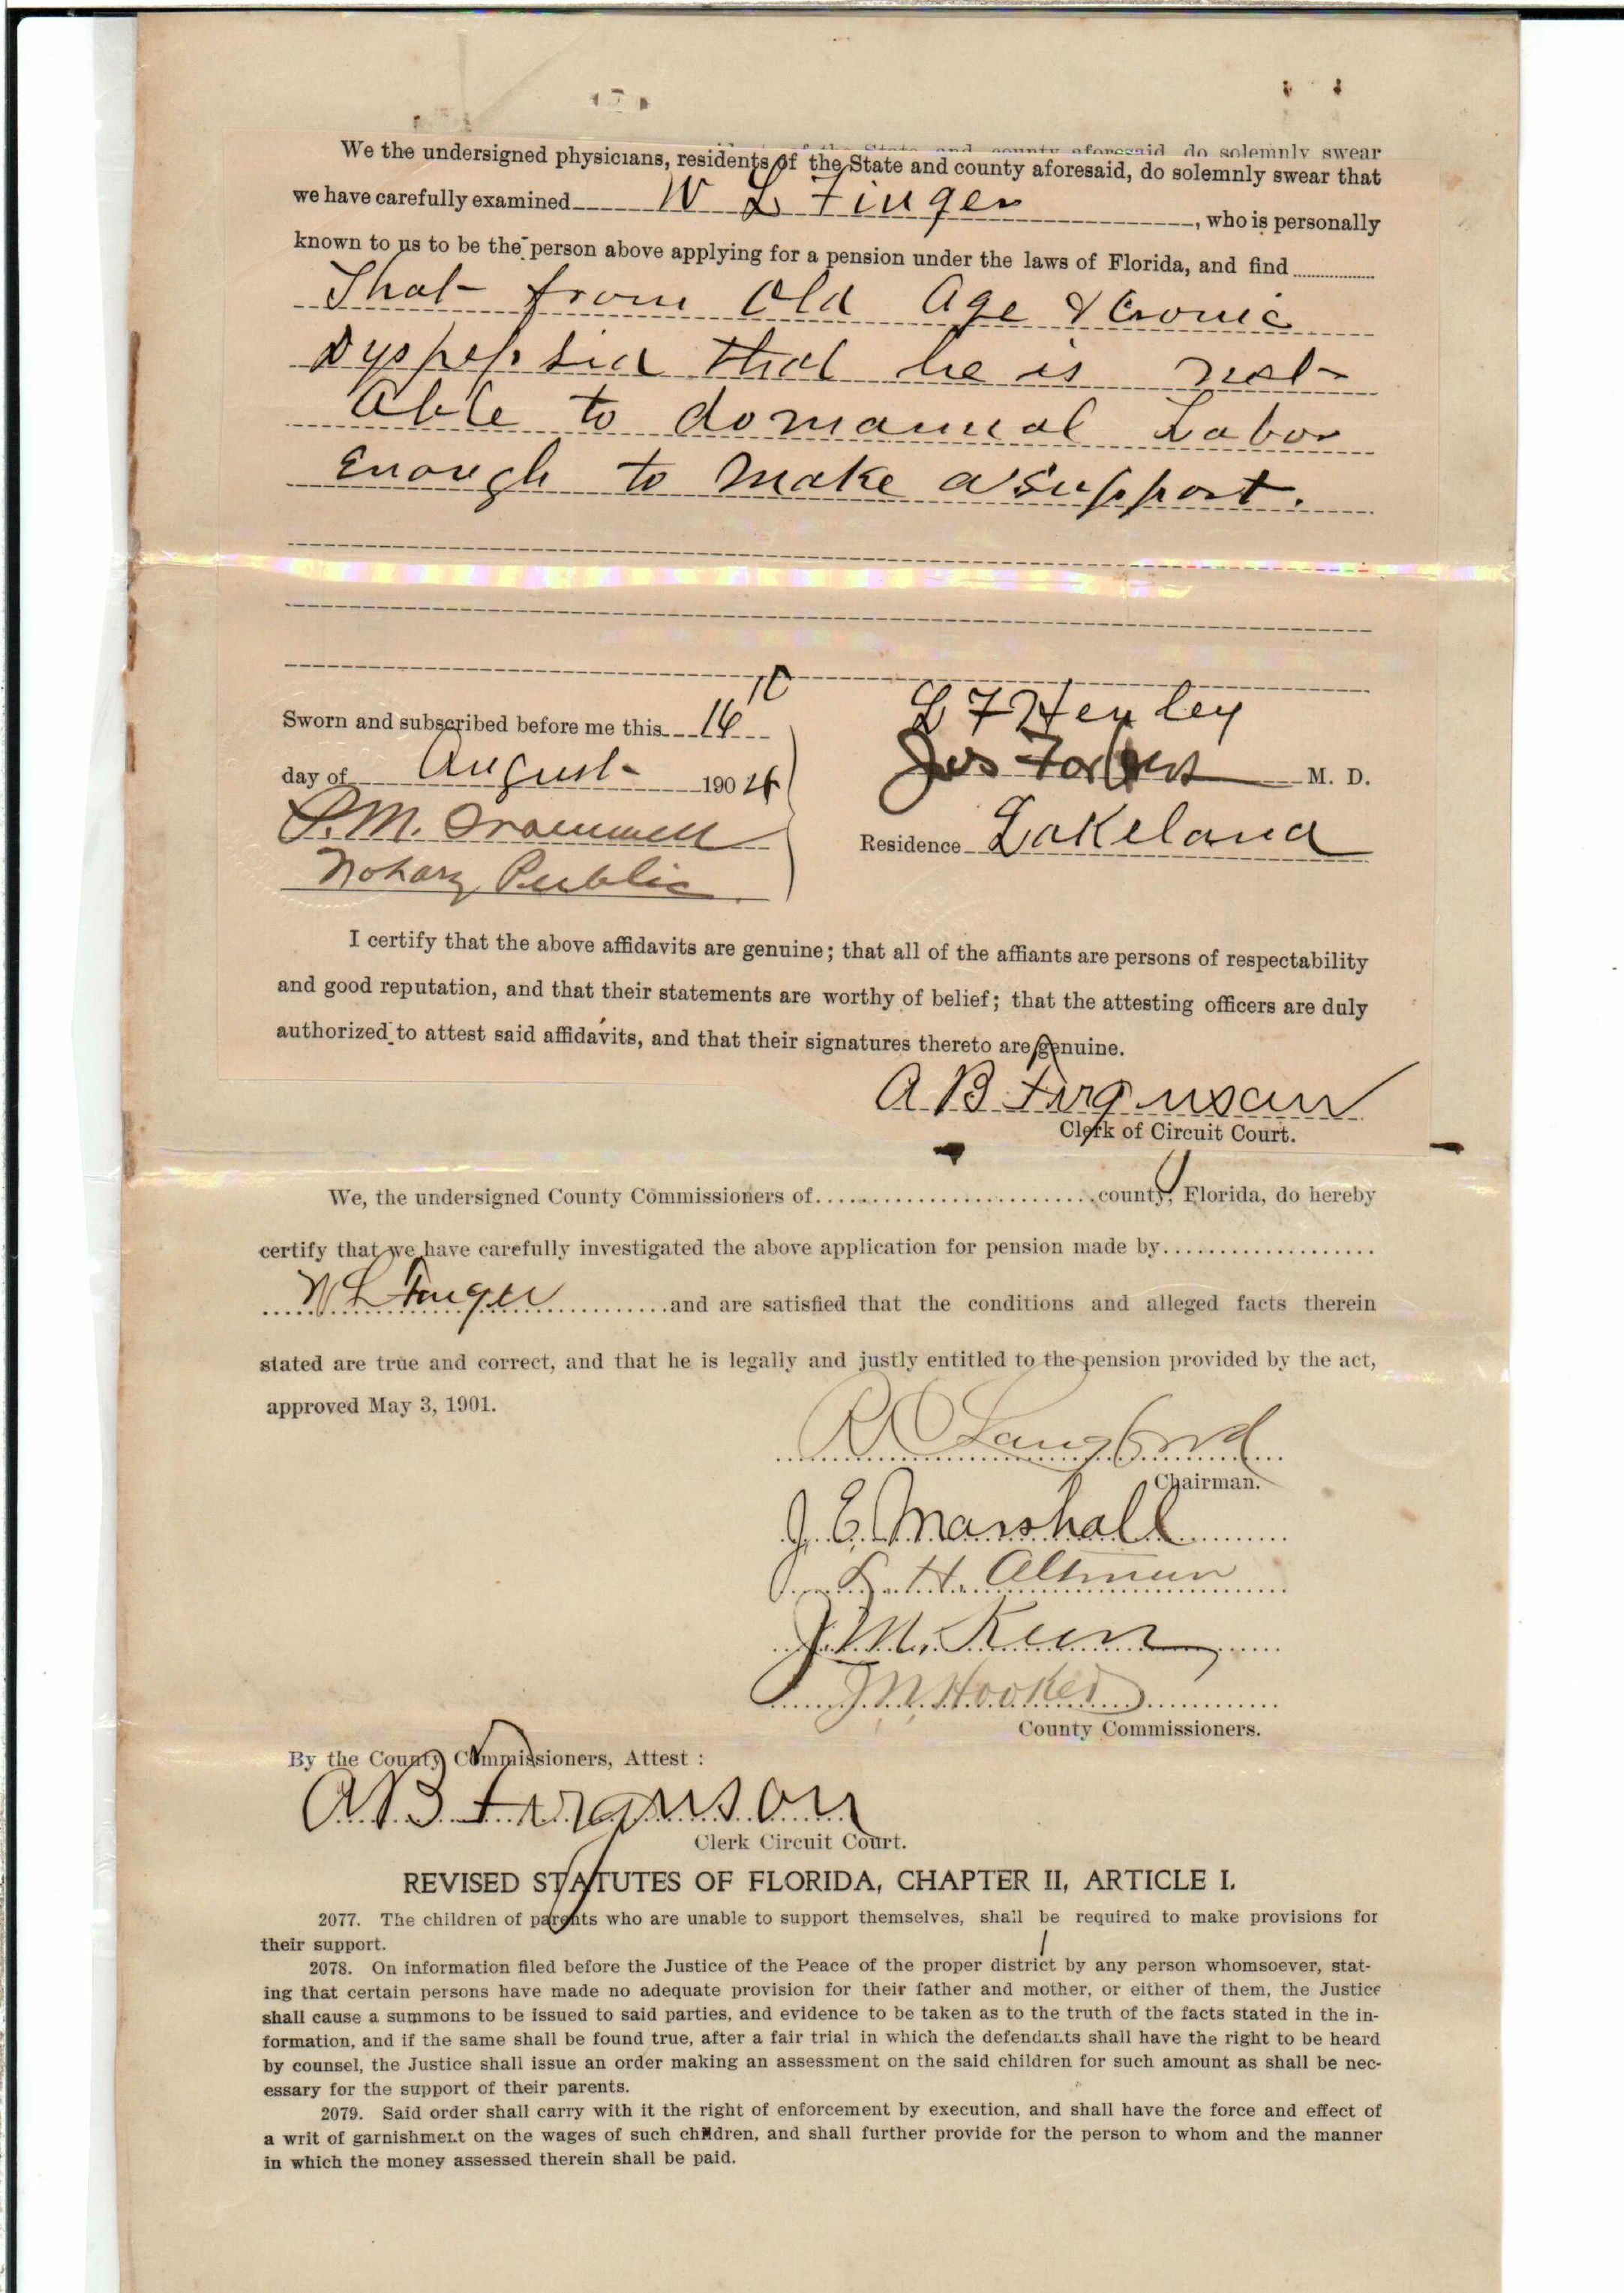 of the State and county aforesaid do solemnly swear
We the undersigned physicians, residents of the State and county aforesaid, do solemnly swear that
we have carefully examined W L Finger, who is personally
known to us to be the person above applying for a pension under the laws of Florida, and find
That from Old Age & Cronic
Dyspepsia that he is not
Able to do manual Labor
Enough to Make a support.
Sworn and subscribed before me this 16
day of August 1904
L F Henley
Jos Forbes M. D.
Residence Lakeland
Notary Public
I certify that the above affidavits are genuine; that all of the affiants are persons of respectability
and good reputation, and that their statements are worthy of belief; that the attesting officers are duly
authorized to attest said affidavits, and that their signatures thereto are genuine.
A B Ferguson
Clerk of Circuit Court.
We, the undersigned County Commissioners of county, Florida, do hereby
certify that we have carefully investigated the above application for pension made by
W L Finger and are satisfied that the conditions and alleged facts therein
stated are true and correct, and that he is legally and justly entitled to the pension provided by the act,
approved May 3, 1901.
Langford
Chairman.
J. E. Marshall
L. H. Altman
J. M. Keen
J N Hooker
County Commissioners.
By the County Commissioners, Attest :
A B Ferguson
Clerk Circuit Court.
REVISED STATUTES OF FLORIDA, CHAPTER II, ARTICLE I.
2077. The children of parents who are unable to support themselves, shall be required to make provisions for
their support.
2078. On information filed before the Justice of the Peace of the proper district by any person whomsoever, stat-
ing that certain persons have made no adequate provision for their father and mother, or either of them, the Justice
shall cause a summons to be issued to said parties, and evidence to be taken as to the truth of the facts stated in the in-
formation, and if the same shall be found true, after a fair trial in which the defendants shall have the right to be heard
by counsel, the Justice shall issue an order making an assessment on the said children for such amount as shall be nec-
essary for the support of their parents.
2079. Said order shall carry with it the right of enforcement by execution, and shall have the force and effect of
a writ of garnishment on the wages of such children, and shall further provide for the person to whom and the manner
in which the money assessed therein shall be paid.